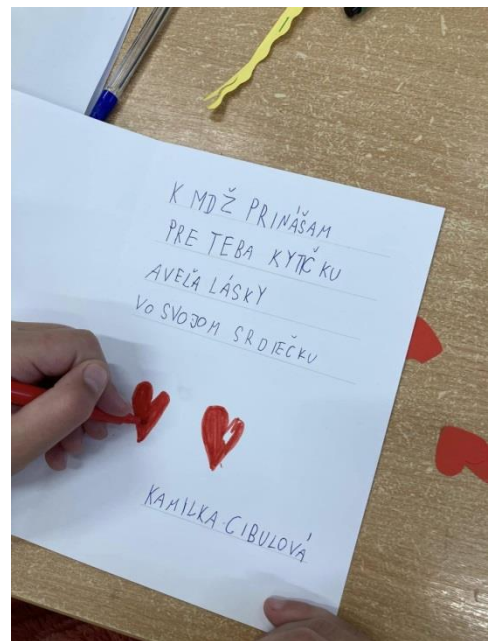 K MDŽ PRINÁŠAM
PRE TEBA KYTIČKU
A VEĽA LÁSKY
VO SVOJOM SRDIEČKU
KAMILKA CIBULOVÁ